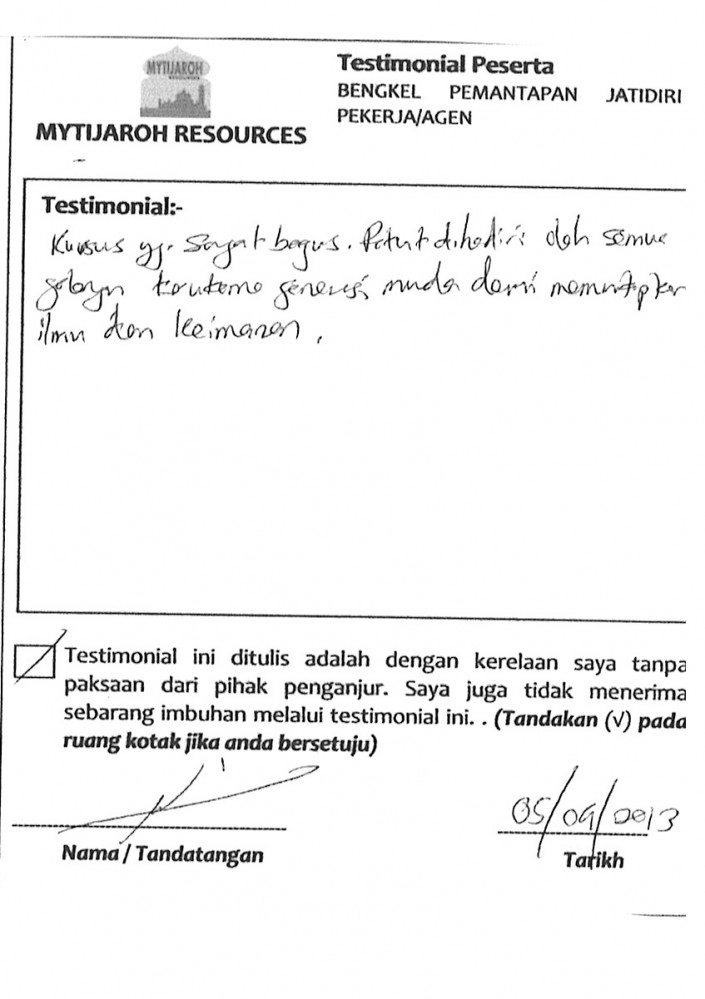 MYTIJAROH
RESOURCES
MYTIJAROH RESOURCES
Testimonial Peserta
BENGKEL PEMANTAPAN JATIDIRI
PEKERJA/AGEN
Testimonial:-
Kursus yg. Sangat bagus. Patut dihadiri oleh semua
golongan terutama generasi muda demi memantapkan
ilmu dan keimanan.
Testimonial ini ditulis adalah dengan kerelaan saya tanpa
paksaan dari pihak penganjur. Saya juga tidak menerima
sebarang imbuhan melalui testimonial ini. . (Tandakan (√) pada
ruang kotak jika anda bersetuju)
05/09/2013
Nama / Tandatangan
Tarikh